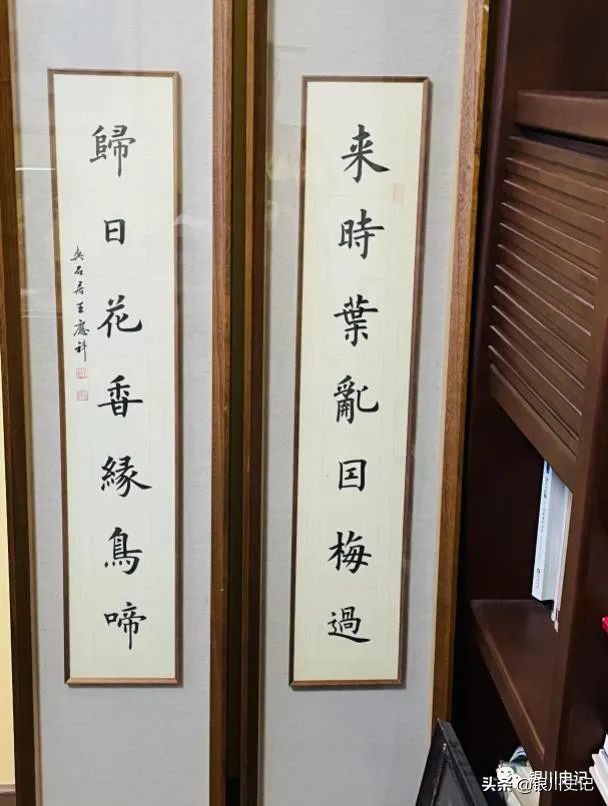 来時葉亂因梅過
歸日花香緣鳥啼
與石居王應科
头条 @银川史记